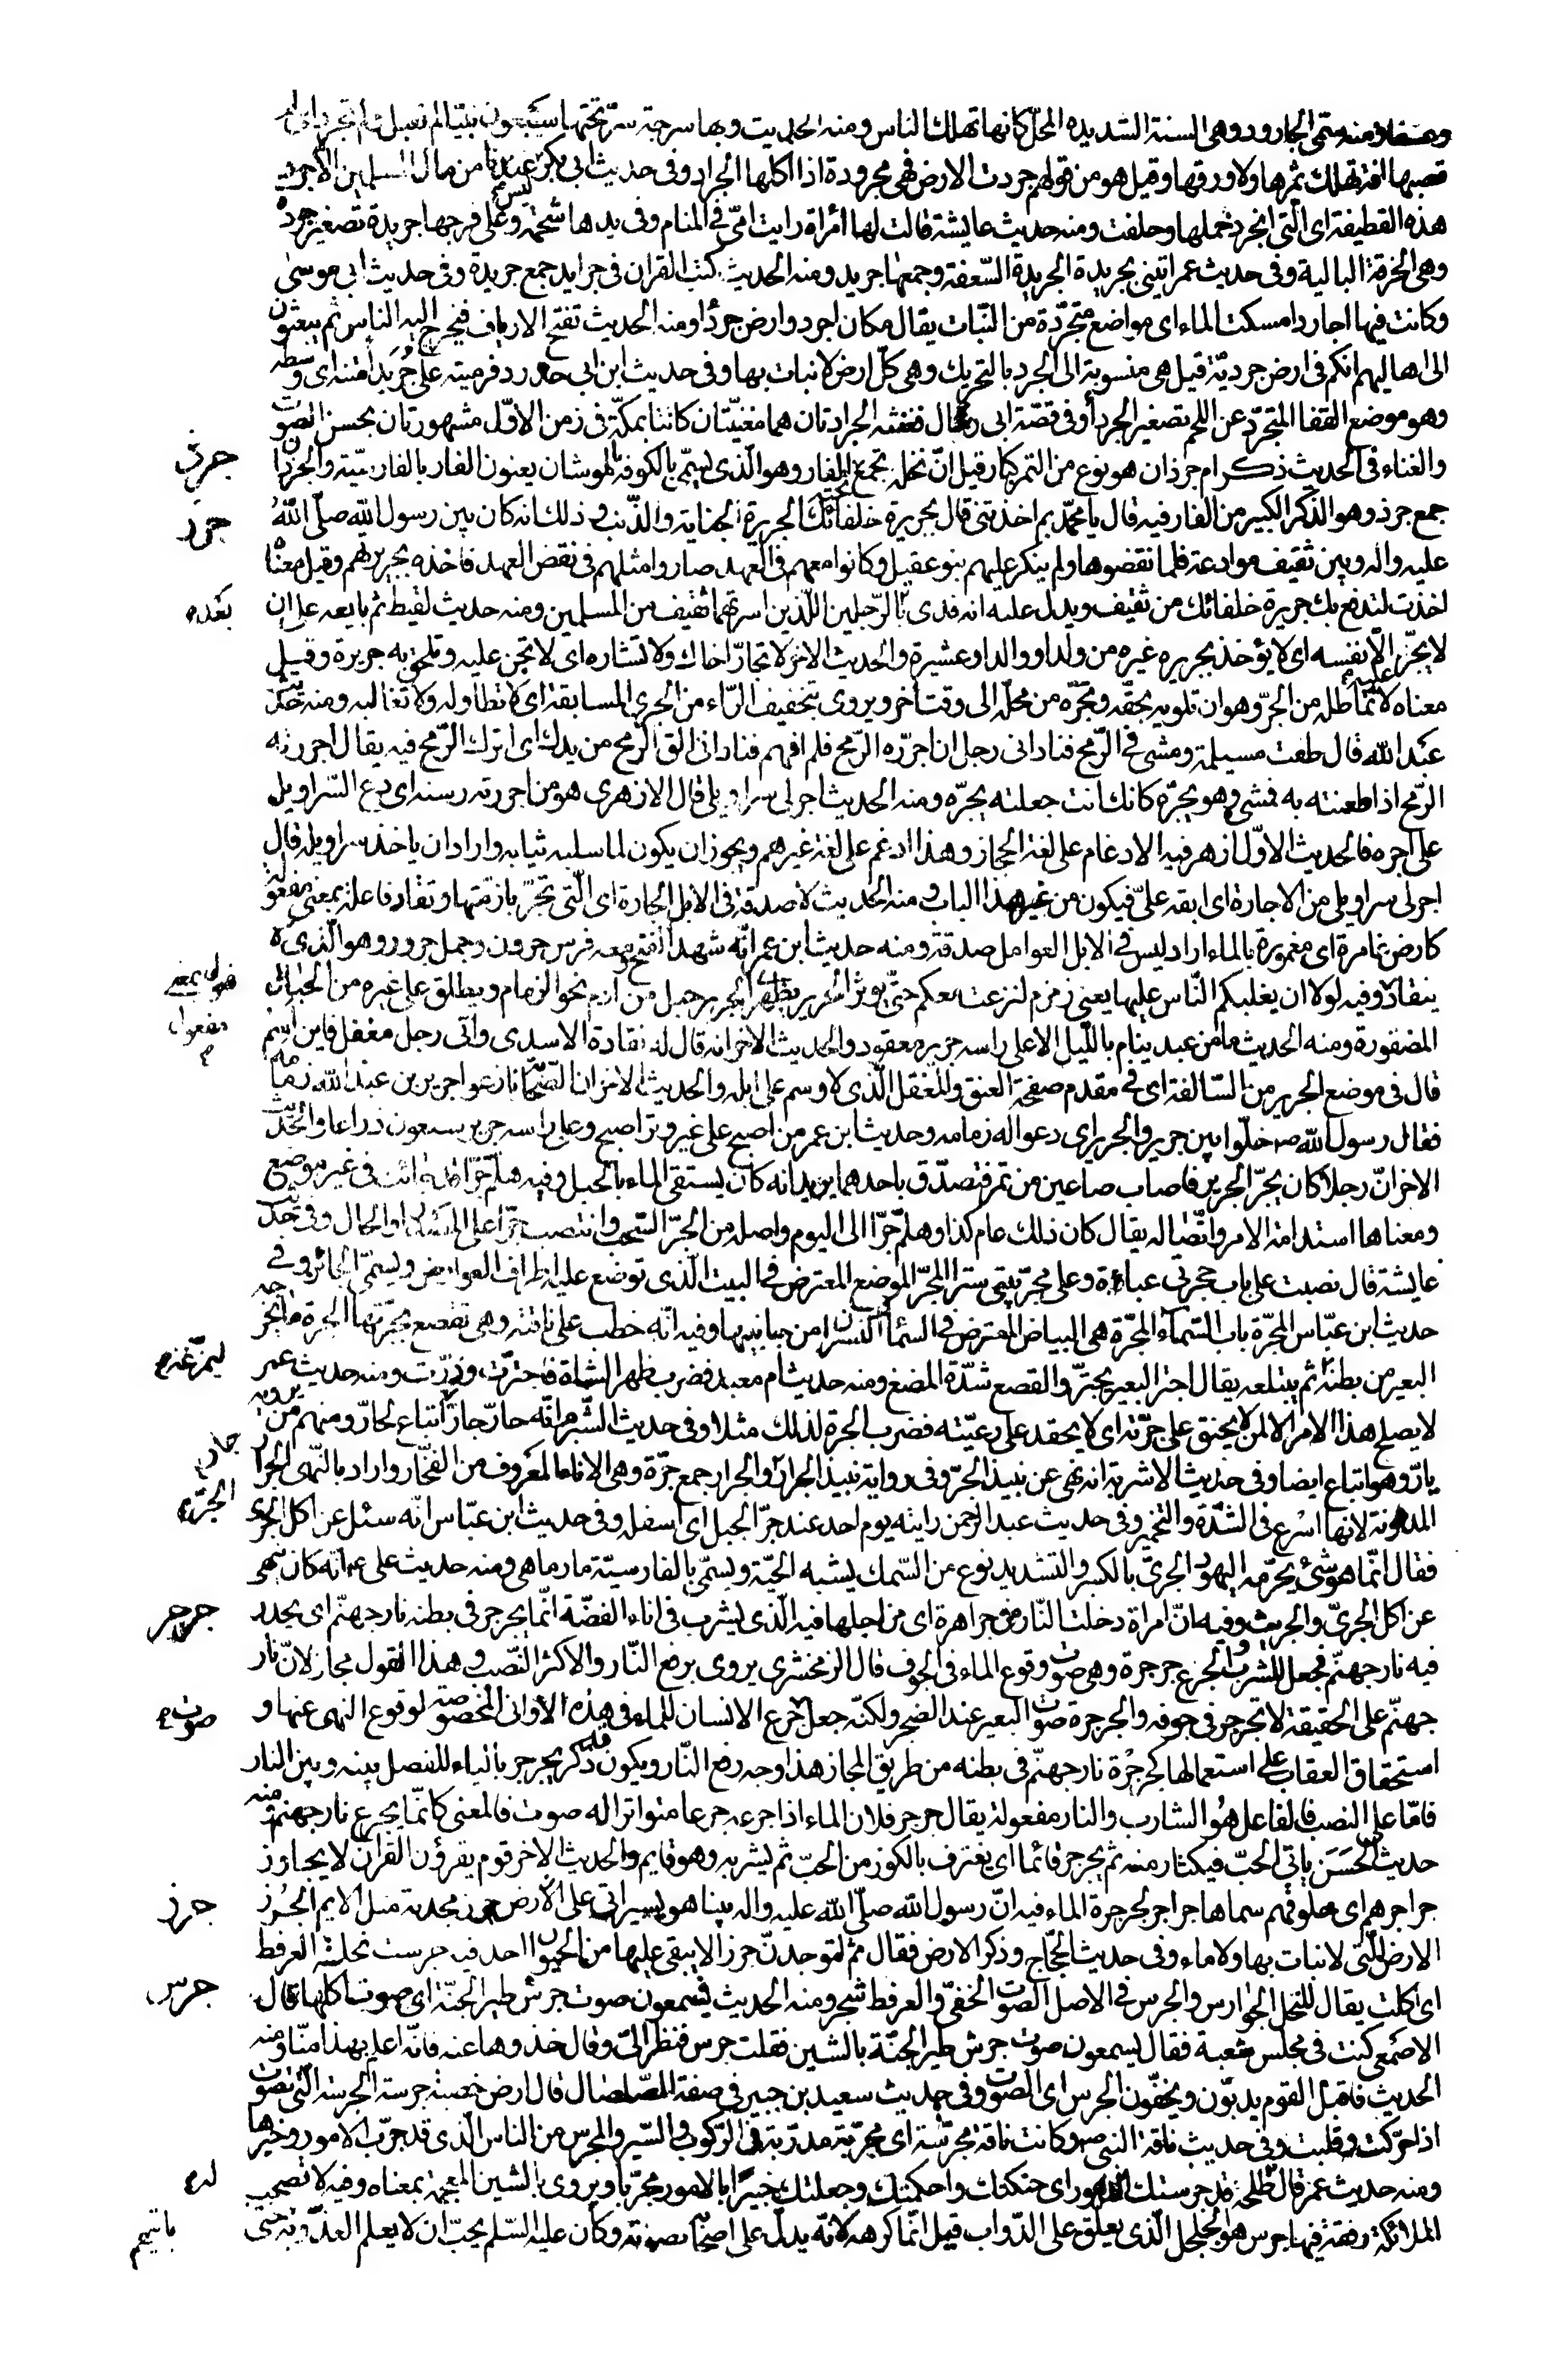 ومنه سمّى الجارود وهى السنة الشديدة المحل كانها تهلك الناس ومنه الحديث وبها سرحة سرّ تحتها سبعون نبيّا لم تعبل ولم تجرد اى لم
تصبها افة تهلك ثمرها ولا ورقها وقيل هو من قولهم جردت الارض فهى مجرودة اذا اكلها الجراد وفى حديث ابى بكر ليس عندنا من مال المسلمين الا جرد
هذه القطيفة اى الّتى انجرد خملها وخلقت ومنه حديث عايشة قالت لها امرأة رايت امّى فى المنام وفى يدها شحمة وعلى فرجها جريدة تصغير جردة
وهى الخرقة البالية وفى حديث عمر اتينى بجريدة الجريدة السّعفة وجمعها جريد ومنه الحديث كتب القران فى جرايد جمع جريدة وفى حديث ابى موسى
وكانت فيها اجارد امسكت الماء اى مواضع متجرّدة من النّبات يقال مكان اجرد وارض جردا ومنه الحديث تفتح الارياف فيخرج اليه الناس ثم يبعثون
الى اهاليهم انكم فى ارض جرديّة قيل هى منسوبة الى الجرد بالتحريك وهى كلّ ارض لا نبات بها وفى حديث ابن ابى حدرد فرميته على جُرَيداء متنه اى وسطه
وهو موضع القفا المتجرّد عن اللحم تصغير الجرداء وفى قصّة ابى رغال فغنته الجرادتان هما مغنيّتان كانتا بمكّة فى زمن الاوّل مشهورتان بحسن الصوت
والغناء فى الحديث ذكر ام جرذان هو نوع من التمر كبار قيل انّ نخله يجتمع تحته الفار وهو الّذى يسمّى بالكوفة الموشان يعنون الفار بالفارسيّة والجرذان
جرذ
جمع جرذ وهو الذكر الكبير من الفار فيه قال يا محمّد بم اخذتنى قال بجريرة خلفائك الجريرة الجناية والذّنب وذلك انه كان بين رسول الله صلّى الله
جرر
عليه واله وبين ثقيف موادعة فلما نقضوها ولم ينكر عليهم بنو عقيل وكانوا معهم فى العهد صاروا مثلهم فى نقض العهد فاخذه بجريرتهم وقيل معناه
اخذت لتدفع بك جريرة خلفائك من ثقيف ويدل عليه انه فدى بالرّجلين اللّذين اسرتهما ثقيف من المسلمين ومنه حديث لقيط ثم بايعه على ان
بعده
لا يجرّ عليه الّا نفسه اى لا يؤخذ بجريرة غيره من ولد او والد او عشيرة والحديث الاخر لا تجارّ اخاك ولا تشاره اى لا تجن عليه وتلحق به جريرة وقيل
معناه لا تماطله من الجرّ وهو ان تلويه بحقّه وتجرّه من محلّه الى وقت اخر ويروى بتخفيف الرّاء من الجرى المسابقة اى لا تطاوله ولا تغالبه ومنه حديث
عبد الله قال طعنت مسيلمة ومشى فى الرّمح فنادانى رجل ان اجرره الرّمح فلم افهم فنادانى الق الرّمح من يدك اى اترك الرّمح فيه يقال اجررته
الرّمح اذا طعنته به فمشى وهو يجرّه كانك انت جعلته يجرّه ومنه الحديث اجر لى سراويلى قال الازهرى هو من اجررته رسنه اى دع السّراويل
علىّ اجره فالحديث الاوّل اظهر فيه الادغام على لغة الحجاز وهذا ادغم على لغة غيرهم ويجوز ان يكون لما سلبه ثيابه واراد ان ياخذ سراويله قال
اجر لى سراويلى من الاجارة اى ابقه علىّ فيكون من غير هذا الباب ومنه الحديث لا صدقة فى الابل الجارة اى الّتى تجرّ بازمّتها وتقاد فاعلة بمعنى مفعولة
كارض غامرة اى مغمورة بالماء اراد ليس فى الابل العوامل صدقة ومنه حديث ابن عمر انّه شهد الفتح ومعه فرس حرون وجمل جرور وهو الّذى لا
ينقاد وفيه لولا ان يغلبكم النّاس عليها يعنى زمزم لنزعت معكم حتّى يؤثر الجرير بظهرى الجرير حبل من ادم نحو الزمام ويطلق على غيره من الحبال
فعول بمعنى مفعول
المضفورة ومنه الحديث ما من عبد ينام بالليل الا على راسه جرير معقود والحديث الاخر انه قال له نقادة الاسدى وانى رجل مغفل فاين اسم
قال فى موضع الجرير من السّالفة اى فى مقدم صفحة العنق والمغفل الّذى لا وسم على ابله والحديث الاخر ان الصّحابة نازعوا جرير بن عبد الله زمامه
فقال رسول الله ص خلّوا بين جرير والجرير اى دعوا له زمامه وحديث ابن عمر من اصبح على غير وتر اصبح وعلى راسه جرير سبعون ذراعا والحديث
الاخر انّ رجلا كان يجرّ الجرير فاصاب صاعين من تمر فتصدّق باحدهما يريد انه كان يستقى الماء بالحبل وفيه هلمّ جرّا قد جائت فى غير موضع
ومعناها استدامة الامر واتّصاله يقال كان ذلك عام كذا وهلمّ جرّا الى اليوم واصله من الجرّ السّحب وانتصب جرّا على المصدر او الحال وفى حديث
عايشة قال نصبت على باب حجرتى عباءة وعلى مجرّ بيتى سترا المجرّ الموضع المعترض فى البيت الّذى توضع عليه اطراف العوارض ويسمّى الجائز وفى
حديث ابن عبّاس المجرّة باب السّماء المجرّة هى البياض المعترض فى السّماء والنسران من جانبيها وفيه انّه خطب على ناقته وهى تقصع بجرّتها الجرة ما يخرجه
البعير من بطنه ثم يبتلعه يقال اجتر البعير يجترّ والقصع شدّة المضغ ومنه حديث ام معبد فضرب ظهر الشاة فاجترّت ودرّت ومنه حديث عمر
ليمزغه
لا يصلح هذا الامر الا لمن لا يحنق على جرّته اى لا يحقد على رعيّته فضرب الجرة لذلك مثلا وفى حديث الشّبرم انّه حارّ جارّ اتباع لحارّ ومنهم من يرويه
يارّ وهو اتباع ايضا وفى حديث الاشربة انه نهى عن نبيذ الجرّ وفى رواية نبيذ الجرار والجرار جمع جرّة وهى الاناء المعروف من الفخّار واراد بالنّهى الجرار
جار
المدهونة لانها اسرع فى الشدّة والتخمير وفى حديث عبد الرحمن رايته يوم احد عند جرّ الجبل اى اسفله وفى حديث ابن عبّاس انّه سئل عن اكل الجرى
الجرّة
فقال انّما هو شئ يحرّمه اليهود الجرىّ بالكسر والتشديد نوع من السّمك يشبه الحيّة ويسمّى بالفارسيّة مار ماهى ومنه حديث على ع انّه كان ينهى
عن اكل الجرىّ والجريث وفيه انّ امراة دخلت النّار من جرا هرة اى من اجلها فيه الّذى يشرب فى اناء الفضّة انّما يجرجر فى بطنه نار جهنّم اى يحدر
جرجر
فيه نار جهنّم فجعل للشرب والجرع جرجرة وهى صوت وقوع الماء فى الجوف قال الزمخشرى يروى برفع النّار والاكثر النّصب وهذا القول مجاز لانّ نار
جهنّم على الحقيقة لا تجرجر فى جوفه والجرجرة صوت البعير عند الضجر ولكنّه جعل جرع الانسان للماء فى هذه الاوانى المخصوصة لوقوع النهى عنها و
صوت
استحقاق العقاب على استعمالها كجرجرة نار جهنّم فى بطنه من طريق المجاز هذا وجه رفع النّار ويكون قد ذكر يجرجر بالياء للفصل بينه وبين النار
فامّا على النصب فالفاعل هو الشارب والنار مفعولة يقال جرجر فلان الماء اذا جرعه جرعا متواترا له صوت فالمعنى كانّما يجرع نار جهنّم ومنه
حديث الحسَن ياتى الحبّ فيكتار منه ثم يجرجر قائما اى يغترف بالكوز من الحبّ ثم يشربه وهو قايم والحديث الاخر قوم يقرؤن القران لا يجاوز
جراجرهم اى حلوقهم سماها جراجر لجرجرة الماء فيه انّ رسول الله صلّى الله عليه واله بينا هو يسير اتى على الارض جرز مجدبة مثل الايم الجُرز
جرز
الارض الّتى لا نبات بها ولا ماء وفى حديث الحجّاج وذكر الارض فقال ثم لتوجدنّ جرزا لا يبقى عليها من الحيوان احد فيه جرست نحلة العرفط
اى اكلت يقال للنحل الجوارس والجرس فى الاصل الصّوت الخفىّ والعرفط شجر ومنه الحديث فيسمعون صوت جرش طير الجنّة اى صوت اكلها قال
جرس
الاصمعى كنت فى مجلس شعبة فقال يسمعون صوت جرش طير الجنّة بالشين فقلت جرس فنظر الىّ وقال خذوها عنه فانّه اعلم بهذا منّا ومنه
الحديث فاقبل القوم يدبّون ويخفّون الجرس اى الصّوت وفى حديث سعيد بن جبير فى صفة الصّلصال قال ارض خصبة جرسة الجرسة الّتى تصوت
اذا حرّكت وقلبت وفى حديث ناقة النبى ص وكانت ناقة مجرّسة اى مجرّبة مدرّبة فى الرّكوب والسّير والمجرس من الناس الّذى قد جرّب الامور وخبرها
ومنه حديث عمر قال طلحة قد جرستك الدهور اى حنكتك واحكمتك وجعلتك خبيرا بالامور مجرّبا ويروى بالشين المعجمة بمعناه وفيه لا تصحب
له
الملائكة رفقة فيها جرس هو الجلجل الّذى يعلّق على الدّواب قيل انّما كرهه لانّه يدلّ على اصحابه بصوته وكان عليه السّلم يحبّ ان لا يعلم العدوّ به حتى
ياتيهم